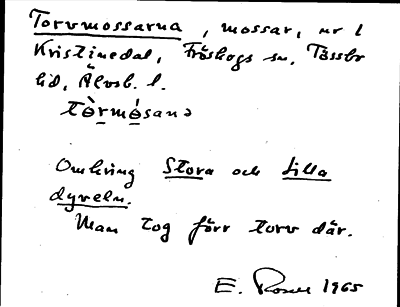 Torvmossarna, mossar, nr 1
Kristinedal, Fröskogs sn, Tössbo
hd, Älvsb. l.
Omkring Stora och Lilla
dyveln.
Man tog förr torv där.
E. Rosen 1965